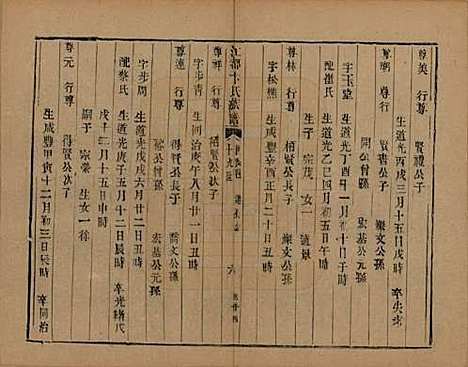 尊美 行尊 賢禮公子
生道光丙戌三月十五日戌時 卒失考
尊朝 行尊 賢書公子 燦文公孫
開公曾孫 宏基公元孫
字玉堂 生道光丁酉十一月初十日子時
配崔氏 生道光乙巳四月初五日午時
子 宗茂 女一 適景
尊林 行尊 栢賢公長子 燦文公孫
字松樵 生咸豐辛酉正月二十日丑時
江都卞氏族譜
十九世 六
尊祥 行尊 栢賢公次子
字步青 生同治庚午八月廿一日丑時
尊連 行尊 得賢公長子 喬文公孫
公曾孫 宏基公元孫
字步周 生道光戊戌六月廿二日丑時
配蔡氏 生道光庚子五月十二日辰時 卒光緒
戊子二月十五日 時
嗣子 宗榮 生女一 徐
尊元 行尊 得賢公次子
生咸豐甲寅十二月初三日辰時 卒同治